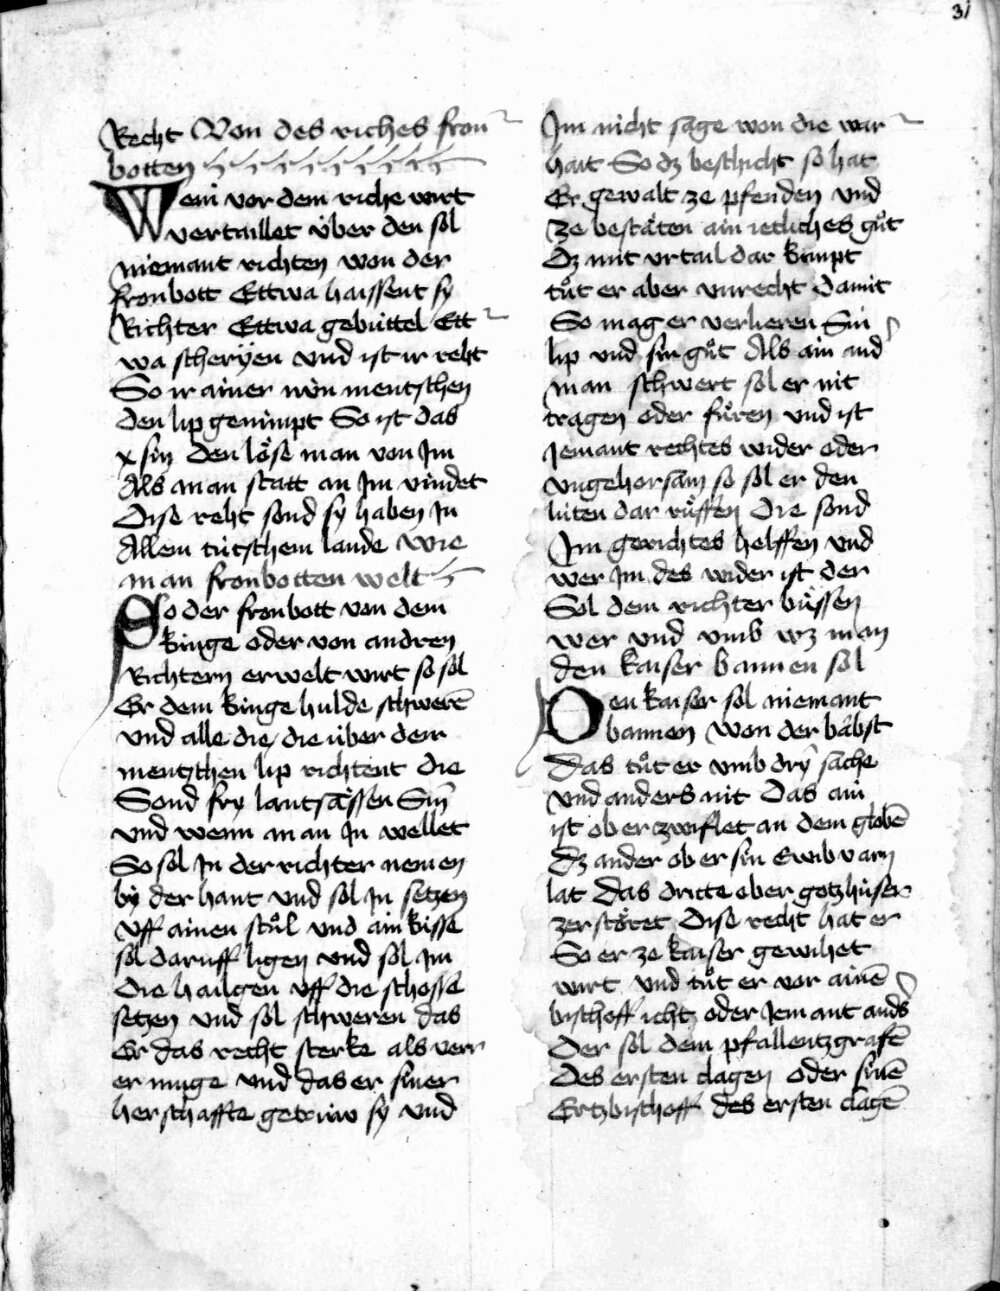 31
Recht Von des riches fron
botten
Wem vor dem riche wirt
vertaillet über den sol
niemant richten won der
fronbott Ettwa haissent sy
Richter Ettwa gebüttel Ett
wa scheryen vnd ist ir reht
So ir ainer nün mentschen
den lip genimpt So ist das
x sin den löse man von Im
Als man statt an Im vindet
Dise reht sond sy haben In
Allem tütschem lande Wie
man fronbotten welt
So der fronbott von dem
künge oder von andren
Richtern erwelt wirt so sol
Er dem künge hulde schwerē
vnd alle die die über der
mentschen lip richtent die
Sond fry lantsässen Sin
vnd wenn man In wellet
So sol In der richter nemen
by der hant vnd sol In setzen
vff ainen stůl vnd ain küsse
sol daruff ligen vnd sol Im
die hailgen vff die schosse
setzen vnd sol schweren das
Er das recht sterke als verr
er muge vnd das er siner
herschaffte getrüw sy vnd
Im nicht sage won die war
hait So dz beschicht so hat
Er gewalt ze pfenden vnd
ze bestäten ain ietliches gůt
Dz mit vrtail dar kumpt
tůt er aber vnrecht damit
So mag er verlieren Sin
lip vnd sin gůt Als ain and
man schwert sol er nit
tragen oder füren vnd ist
Iemant rechtes wider oder
vngehorsam so sol er den
lüten dar rüffen Die sond
Im gerichtes helffen vnd
wer Im des wider ist der
Sol dem richter büssen
wer vnd vmb wz man
den kaiser bannen sol
Den kaiser sol niemant
bannen Won der bäbst
Das tůt er vmb dry sache
vnd anders nit Das ain
ist ob er zwiflet an dem globē
Dz ander ob er sin Ewib varn
lat Das dritte ob er gotzhüser
zerstöret Dise recht hat er
So er ze kaiser gewihet
wirt vnd tůt er vor ainē
bischoff icht oder Iemant ands
Der sol dem pfallentzgrafē
Des ersten clagen oder sinē
Ertzbischoff des ersten clagē